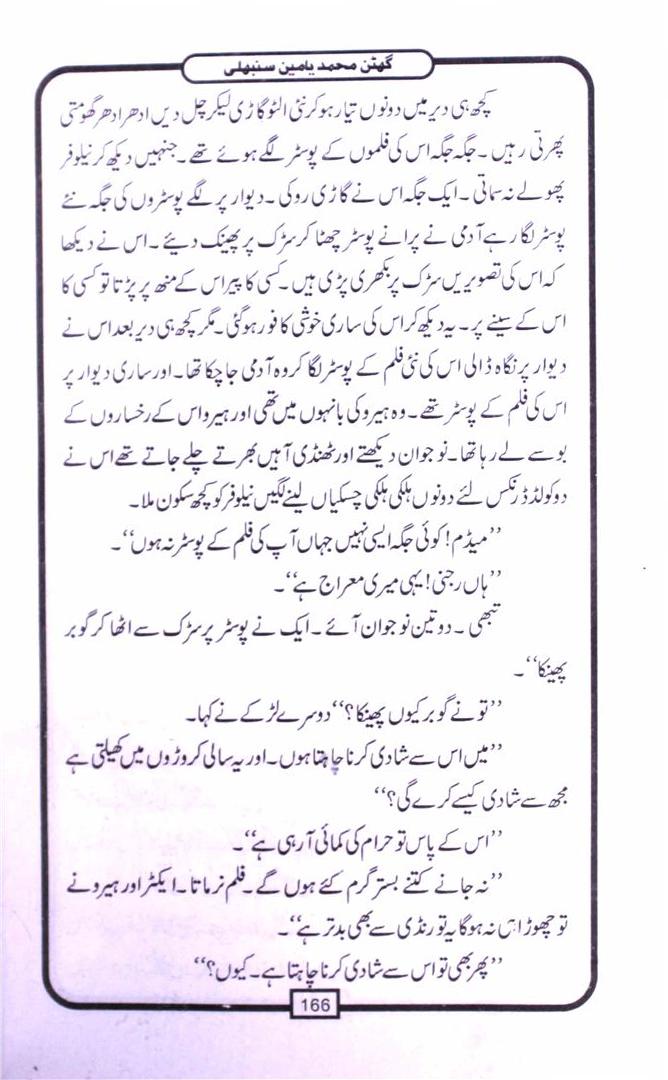 گھٹن محمد یامین سنبھلی
کچھ ہی دیر میں دونوں تیار ہو کر نئی الٹو گاڑی لیکر چل دیں ادھر ادھر گھومتی
پھرتی رہیں ۔ جگہ جگہ اس کی فلموں کے پوسٹر لگے ہوئے تھے ۔ جنہیں دیکھ کر نیلوفر
پھولے نہ سماتی ۔ ایک جگہ اس نے گاڑی روکی ۔ دیوار پر لگے پوسٹروں کی جگہ نئے
پوسٹر لگا رہے آدمی نے پرانے پوسٹر چھٹا کر سڑک پر پھینک دیئے ۔ اس نے دیکھا
کہ اس کی تصویریں سڑک پر بکھری پڑی ہیں ۔ کسی کا پیر اس کے منھ پر پڑتا تو کسی کا
اس کے سینے پر ۔ یہ دیکھ کر اس کی ساری خوشی کافور ہو گئی ۔ مگر کچھ ہی دیر بعد اس نے
دیوار پر نگاہ ڈالی اس کی نئی فلم کے پوسٹر لگا کر وہ آدمی جا چکا تھا ۔ اور ساری دیوار پر
اس کی فلم کے پوسٹر تھے ۔ وہ ہیرو کی بانہوں میں تھی اور ہیرو اس کے رخساروں کے
بوسے لے رہا تھا ۔ نوجوان دیکھتے اور ٹھنڈی آہیں بھرتے چلے جاتے تھے اس نے
دو کولڈ ڈرنکس لئے دونوں ہلکی ہلکی چسکیاں لینے لگیں نیلوفر کو کچھ سکون ملا ۔
”میڈم! کوئی جگہ ایسی نہیں جہاں آپ کی فلم کے پوسٹر نہ ہوں“ ۔
”ہاں رجنی! یہی میری معراج ہے“ ۔
تبھی ۔ دو تین نوجوان آئے ۔ ایک نے پوسٹر پر سڑک سے اٹھا کر گوبر
پھینکا“ ۔
”تو نے گوبر کیوں پھینکا؟“ دوسرے لڑکے نے کہا ۔
”میں اس سے شادی کرنا چاہتا ہوں ۔ اور یہ سالی کروڑوں میں کھیلتی ہے
مجھ سے شادی کیسے کرے گی؟“
”اس کے پاس تو حرام کی کمائی آ رہی ہے“ ۔
”نہ جانے کتنے بستر گرم کئے ہوں گے ۔ فلم نرماتا ۔ ایکٹر اور ہیرو نے
تو چھوڑا ہی نہ ہوگا یہ تو رنڈی سے بھی بدتر ہے“ ۔
”پھر بھی تو اس سے شادی کرنا چاہتا ہے ۔ کیوں؟“
166